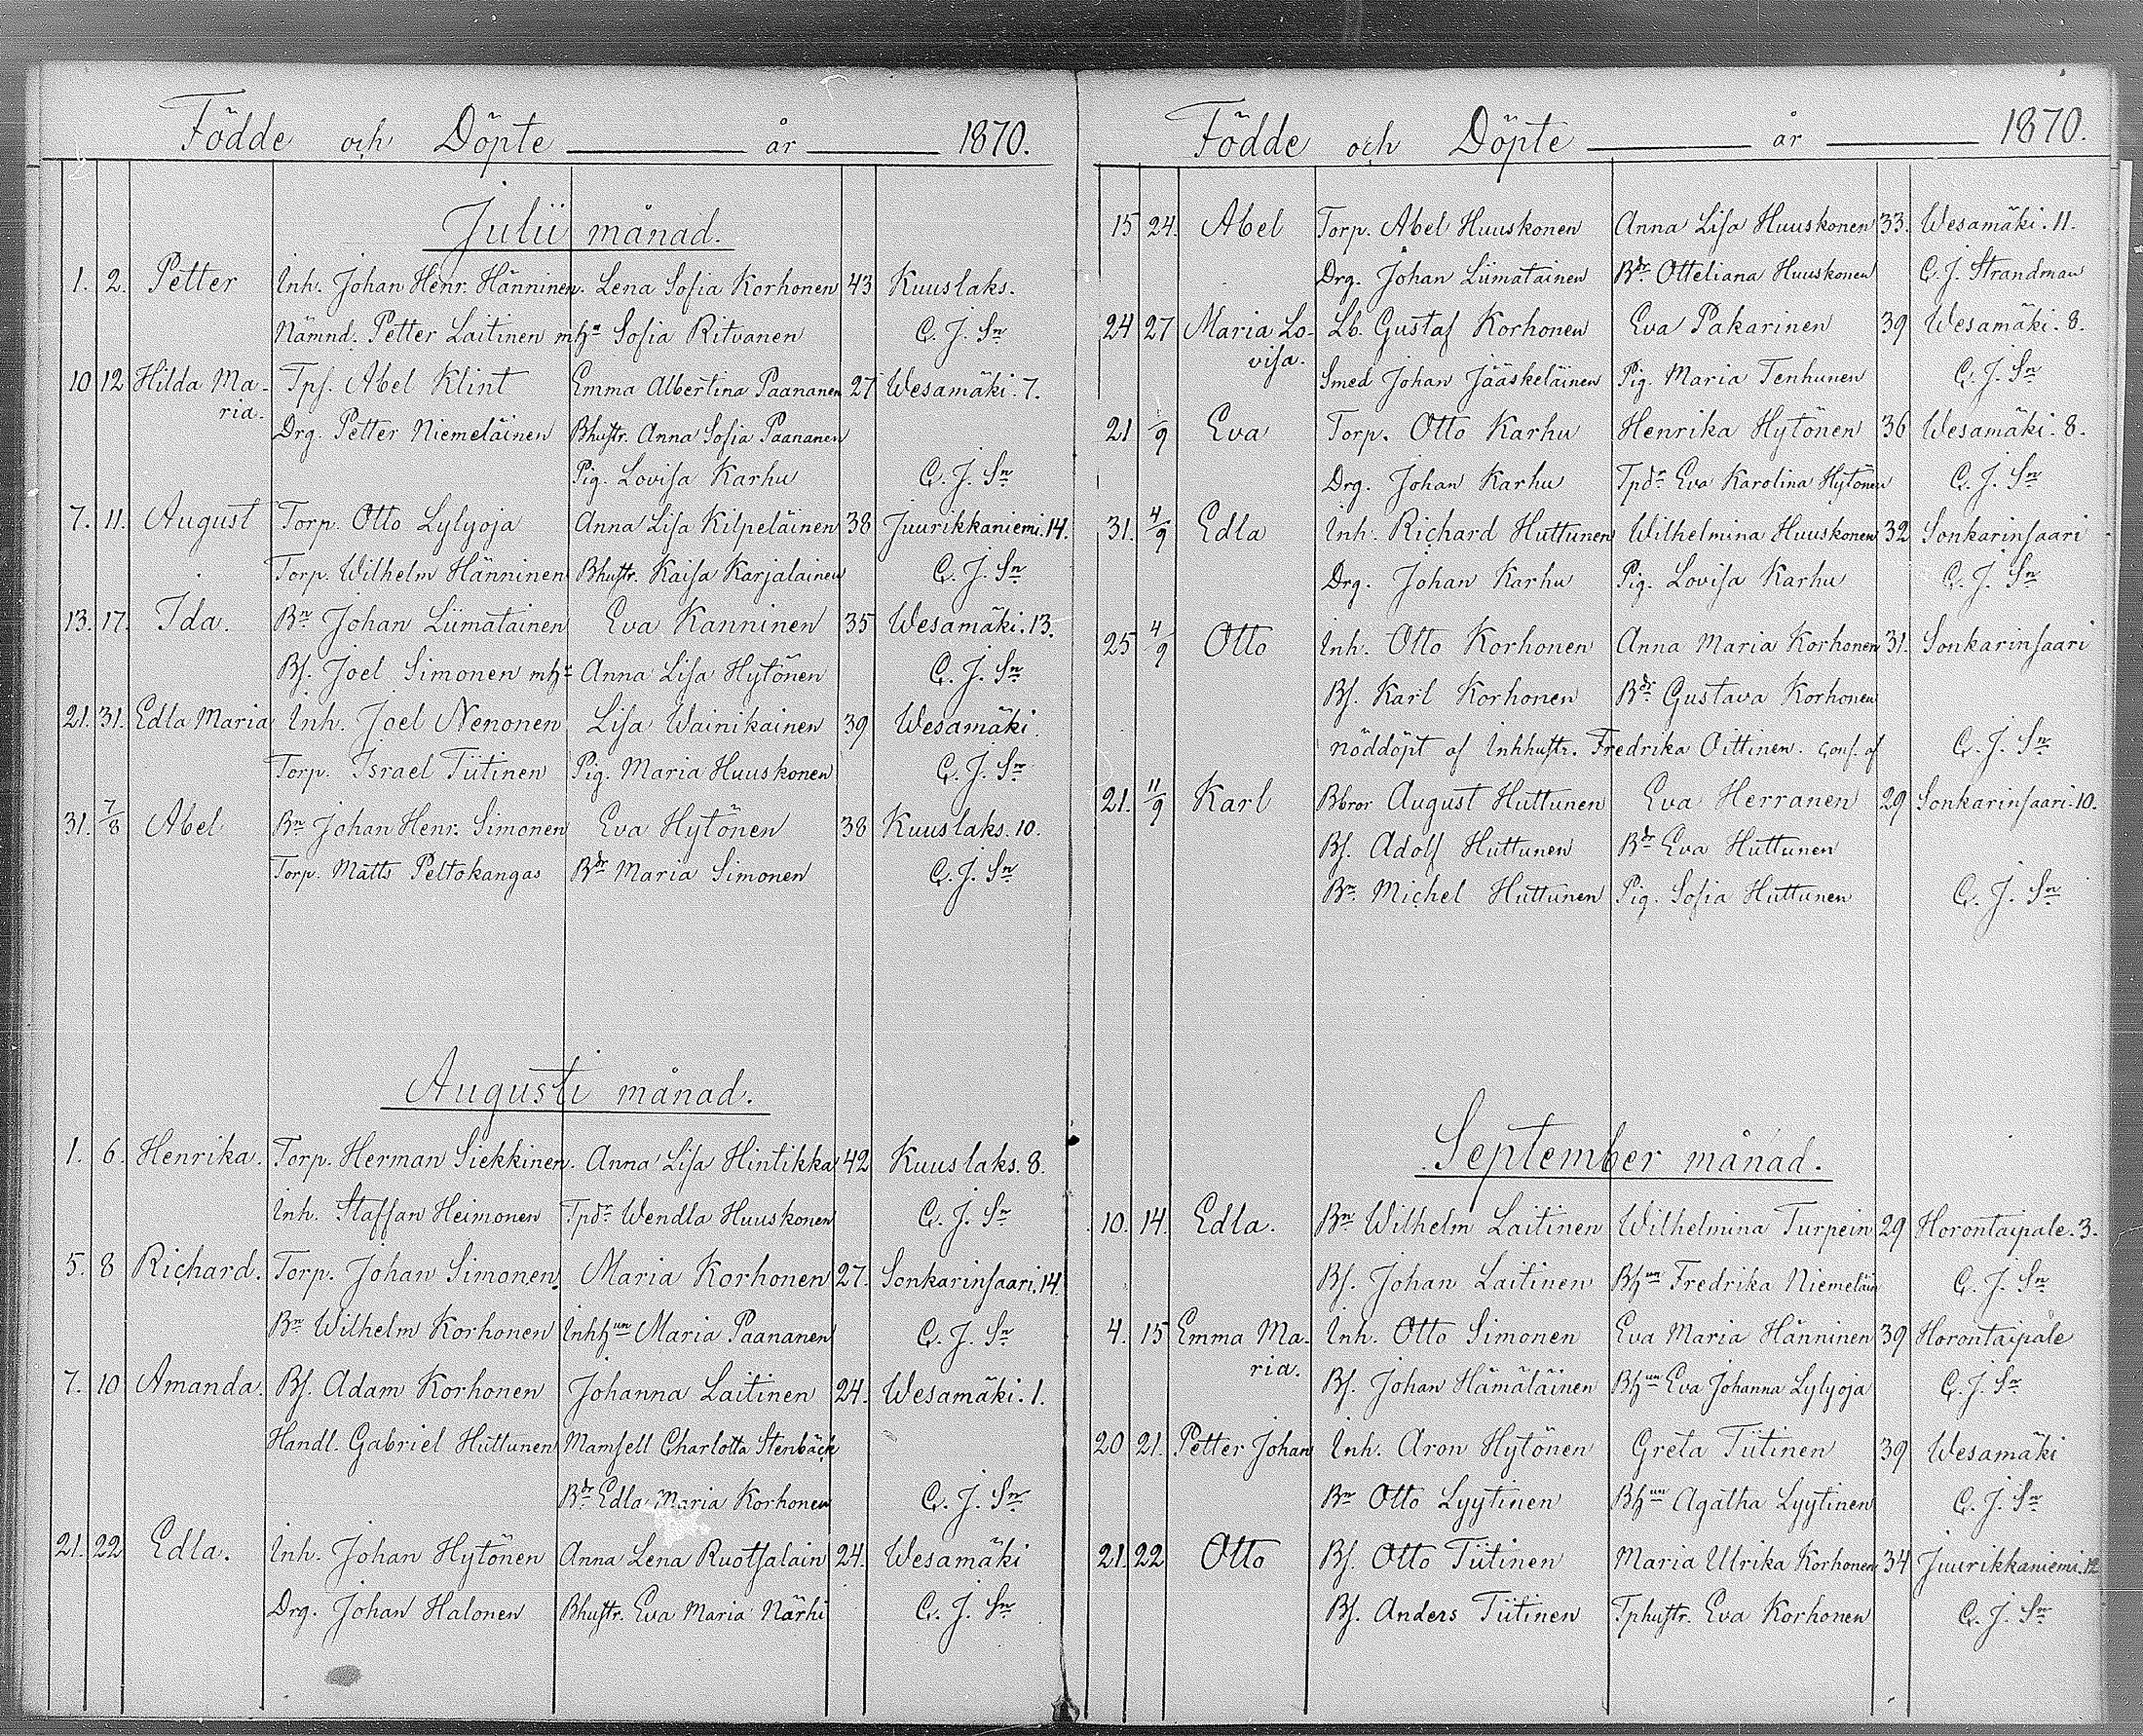 Födde och Döpte år 1870.
Julii månad.
1. 2. Petter Inh. Johan Henr. Hänninen. Lena Sofia Korhonen 43 Kuuslaks.
Nämnd. Petter Laitinen mhn Sofia Ritvanen C. J. Sn
10 12 Hilda Ma- Tps. Abel Klint Emma Albertina Paananen 27 Wesamäki. 7.
ria. Drg. Petter Niemeläinen Bhustr. Anna Sofia Paananen
Pig. Lovisa Karhu C. J. Sn
7. 11. August Torp. Otto Lylyoja Anna Lisa Kilpeläinen 38 Juurikkaniemi. 14.
Torp. Wilhelm Hänninen Bhustr. Kaisa Karjalainen C. J. Sn
13. 17. Ida. Bn Johan Liimatainen Eva Kanninen 35 Wesamäki. 13.
Bs. Joel Simonen mhr Anna Lisa Hytönen C. J. Sn
21. 31. Edla Maria Inh. Joel Nenonen Lisa Wainikainen 39 Wesamäki.
Torp. Israel Tiitinen Pig. Maria Huuskonen C. J. Sn
31. 7/8 Abel Bn Johan Henr. Simonen Eva Hytönen 38 Kuuslaks. 10.
Torp. Matts Peltokangas Bdr Maria Simonen C. J. Sn
Augusti månad.
1. 6. Henrika. Torp. Herman Siekkinen. Anna Lisa Hintikka 42 Kuuslaks. 8.
Inh. Staffan Heimonen Tpdr Wendla Huuskonen C. J. Sn
5. 8 Richard. Torp. Johan Simonen. Maria Korhonen 27. Sonkarinsaari. 14.
Bn Wilhelm Korhonen Inhhun Maria Paananen C. J. Sn
7. 10 Amanda. Bs. Adam Korhonen Johanna Laitinen 24. Wesamäki. 1.
Handl. Gabriel Huttunen Mamsell Charlotta Stenbäck
Bdr Edla Maria Korhonen C. J. Sn
21. 22 Edla. Inh. Johan Hytönen Anna Lena Ruotsalain 24. Wesamäki
Drg. Johan Halonen Bhustr. Eva Maria Närhi C. J. Sn
Födde och Döpte år 1870.
15 24. Abel Torp. Abel Huuskonen Anna Lisa Huuskonen 33. Wesamäki. 11.
Drg. Johan Liimatainen Bdr Otteliana Huuskonen C. J. Strandman
24 27 Maria Lo- Lb. Gustaf Korhonen Eva Pakarinen 39 Wesamäki. 8.
visa. Smed Johan Jääskeläinen Pig. Maria Tenhunen C. J. Sn
21 1/9 Eva Torp. Otto Karhu Henrika Hytönen 36 Wesamäki. 8.
Drg. Johan Karhu Tpdr Eva Karolina Hytönen C. J. Sn
31. 4/9 Edla Inh. Richard Huttunen Wilhelmina Huuskonen 32 Sonkarinsaari
Drg. Johan Karhu Pig. Lovisa Karhu C. J. Sn
25 4/9 Otto Inh. Otto Korhonen Anna Maria Korhonen 31. Sonkarinsaari
Bs. Karl Korhonen Bdr Gustava Korhonen
nöddöpt af Inhhustr. Fredrika Oittinen. Conf. af C. J. Sn
21. 11/9 Karl Bbror August Huttunen Eva Herranen 29 Sonkarinsaari. 10.
Bs. Adolf Huttunen Bdr Eva Huttunen
Bn Michel Huttunen Pig. Sofia Huttunen C. J. Sn
September månad.
10. 14. Edla. Bn Wilhelm Laitinen Wilhelmina Turpein 29 Horontaipale. 3.
Bs. Johan Laitinen Bhun Fredrika Niemeläin C. J. Sn
4. 15 Emma Ma- Inh. Otto Simonen Eva Maria Hänninen 39 Horontaipale
ria. Bs. Johan Hämäläinen Bhun Eva Johanna Lylyoja C. J. Sn
20 21. Petter Johan Inh. Aron Hytönen Greta Tiitinen 39 Wesamäki
Bn Otto Lyytinen Bhun Agatha Lyytinen C. J. Sn
21. 22 Otto Bs. Otto Tiitinen Maria Ulrika Korhonen 34 Juurikkaniemi. 12
Bs. Anders Tiitinen Tphustr. Eva Korhonen C. J. Sn